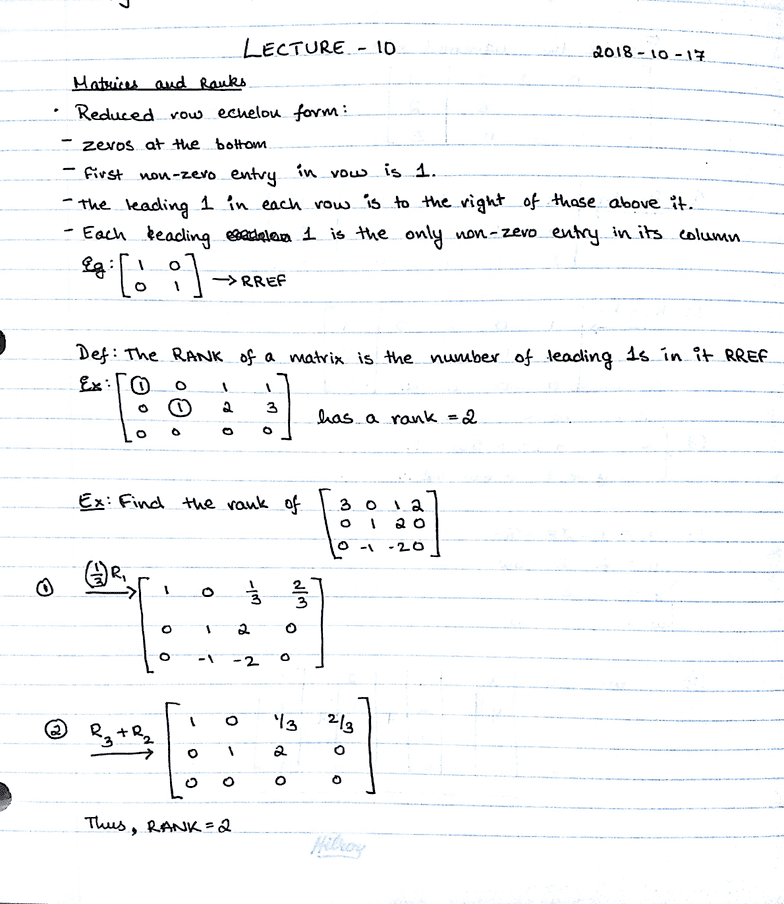 LECTURE - 10 2018-10-17
Matrices and Ranks
• Reduced row echelon form:
- zeros at the bottom
- first non-zero entry in row is 1.
- the leading 1 in each row is to the right of those above it.
- Each leading 1 is the only non-zero entry in its column
Eg: [1 0
0 1] → RREF
Def: The RANK of a matrix is the number of leading 1s in it RREF
Ex: [① 0 1 1
0 ① 2 3
0 0 0 0] has a rank = 2
Ex: Find the rank of [3 0 1 2
0 1 2 0
0 -1 -2 0]
① (1/3)R₁ → [1 0 1/3 2/3
0 1 2 0
0 -1 -2 0]
② R₃+R₂ → [1 0 1/3 2/3
0 1 2 0
0 0 0 0]
Thus, RANK = 2
Hilroy